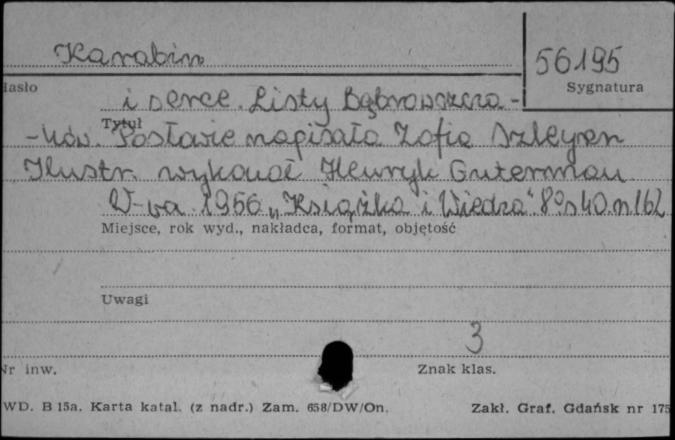 Karabin
56195
Hasło
Sygnatura
i serce. Listy Dąbrowszcza-
Tytuł
-ków. Posłowie napisała Zofia Szleyen
Ilustr. wykonał Henryk Guterman
W-wa 1956 „Książka i Wiedza" 8° s 40. n 162
Miejsce, rok wyd., nakładca, format, objętość
Uwagi
3
Nr inw.
Znak klas.
WD. B 15a. Karta katal. (z nadr.) Zam. 658/DW/On.
Zakł. Graf. Gdańsk nr 175